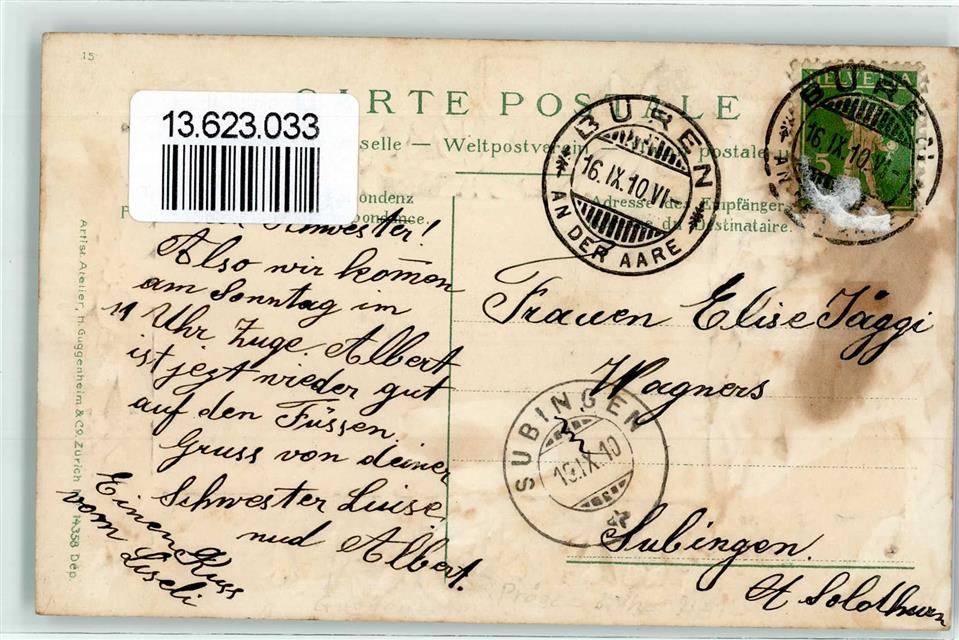 15
13.623.033
CARTE POSTALE
selle — Weltpostverein postale u
ndenz
pondance.
Adresse des Empfängers
du Destinataire.
HELVETIA
5
BÜREN
16.IX.10.VI
AN DER AARE
BÜREN
16.IX.10.VI
AN
Schwester!
Also wir kommen
am Sonntag im
11 Uhr Zuge. Albert
ist jezt wieder gut
auf den Füssen.
Gruss von deiner
Schwester Luise,
nud Albert.
Einen Kuss
vom Liseli
Frauen Elise Jäggi
Wagners
SUBINGEN
16.IX.10
Subingen.
Kt Solothurn
Artist. Atelier, H. Guggenheim & Co, Zürich 14358 Dép.